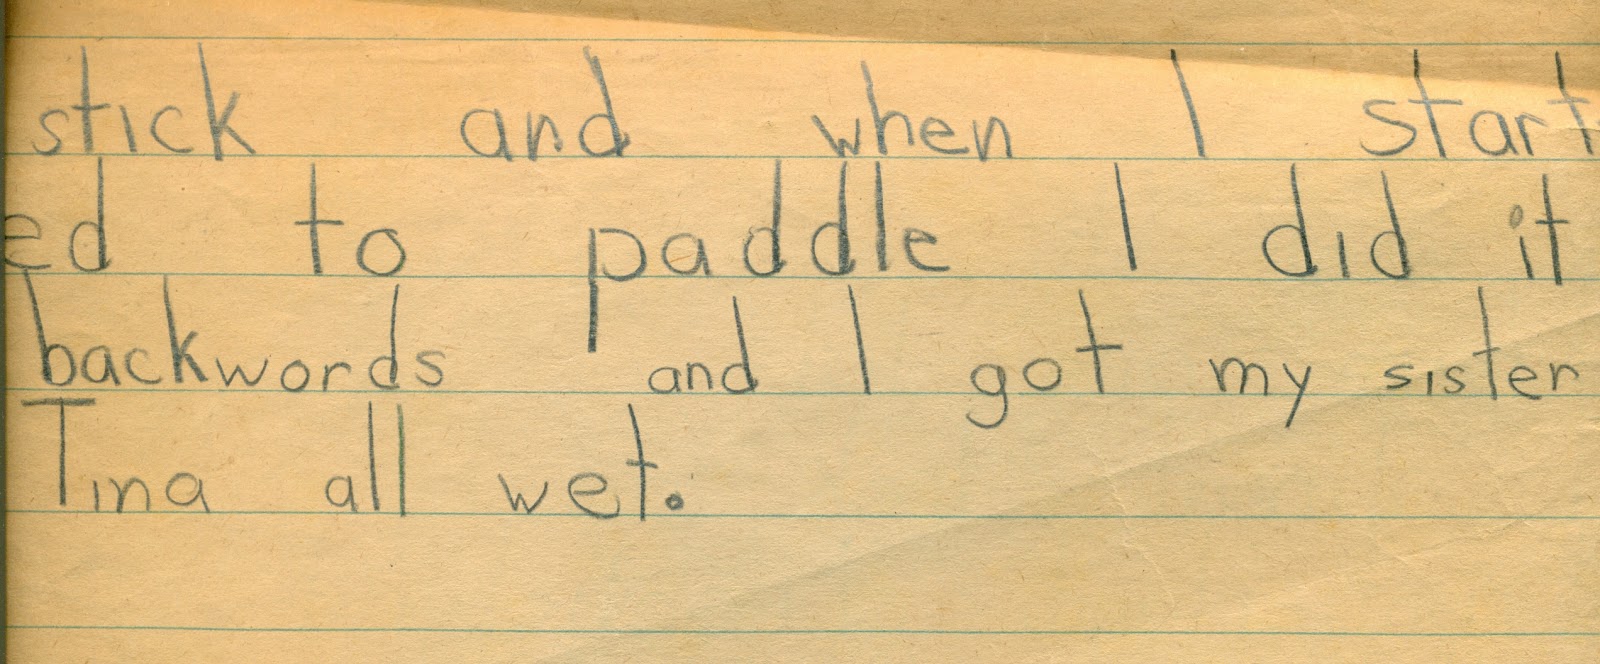 stick and when I start
ed to paddle I did it
backwords and I got my sister
Tina all wet.